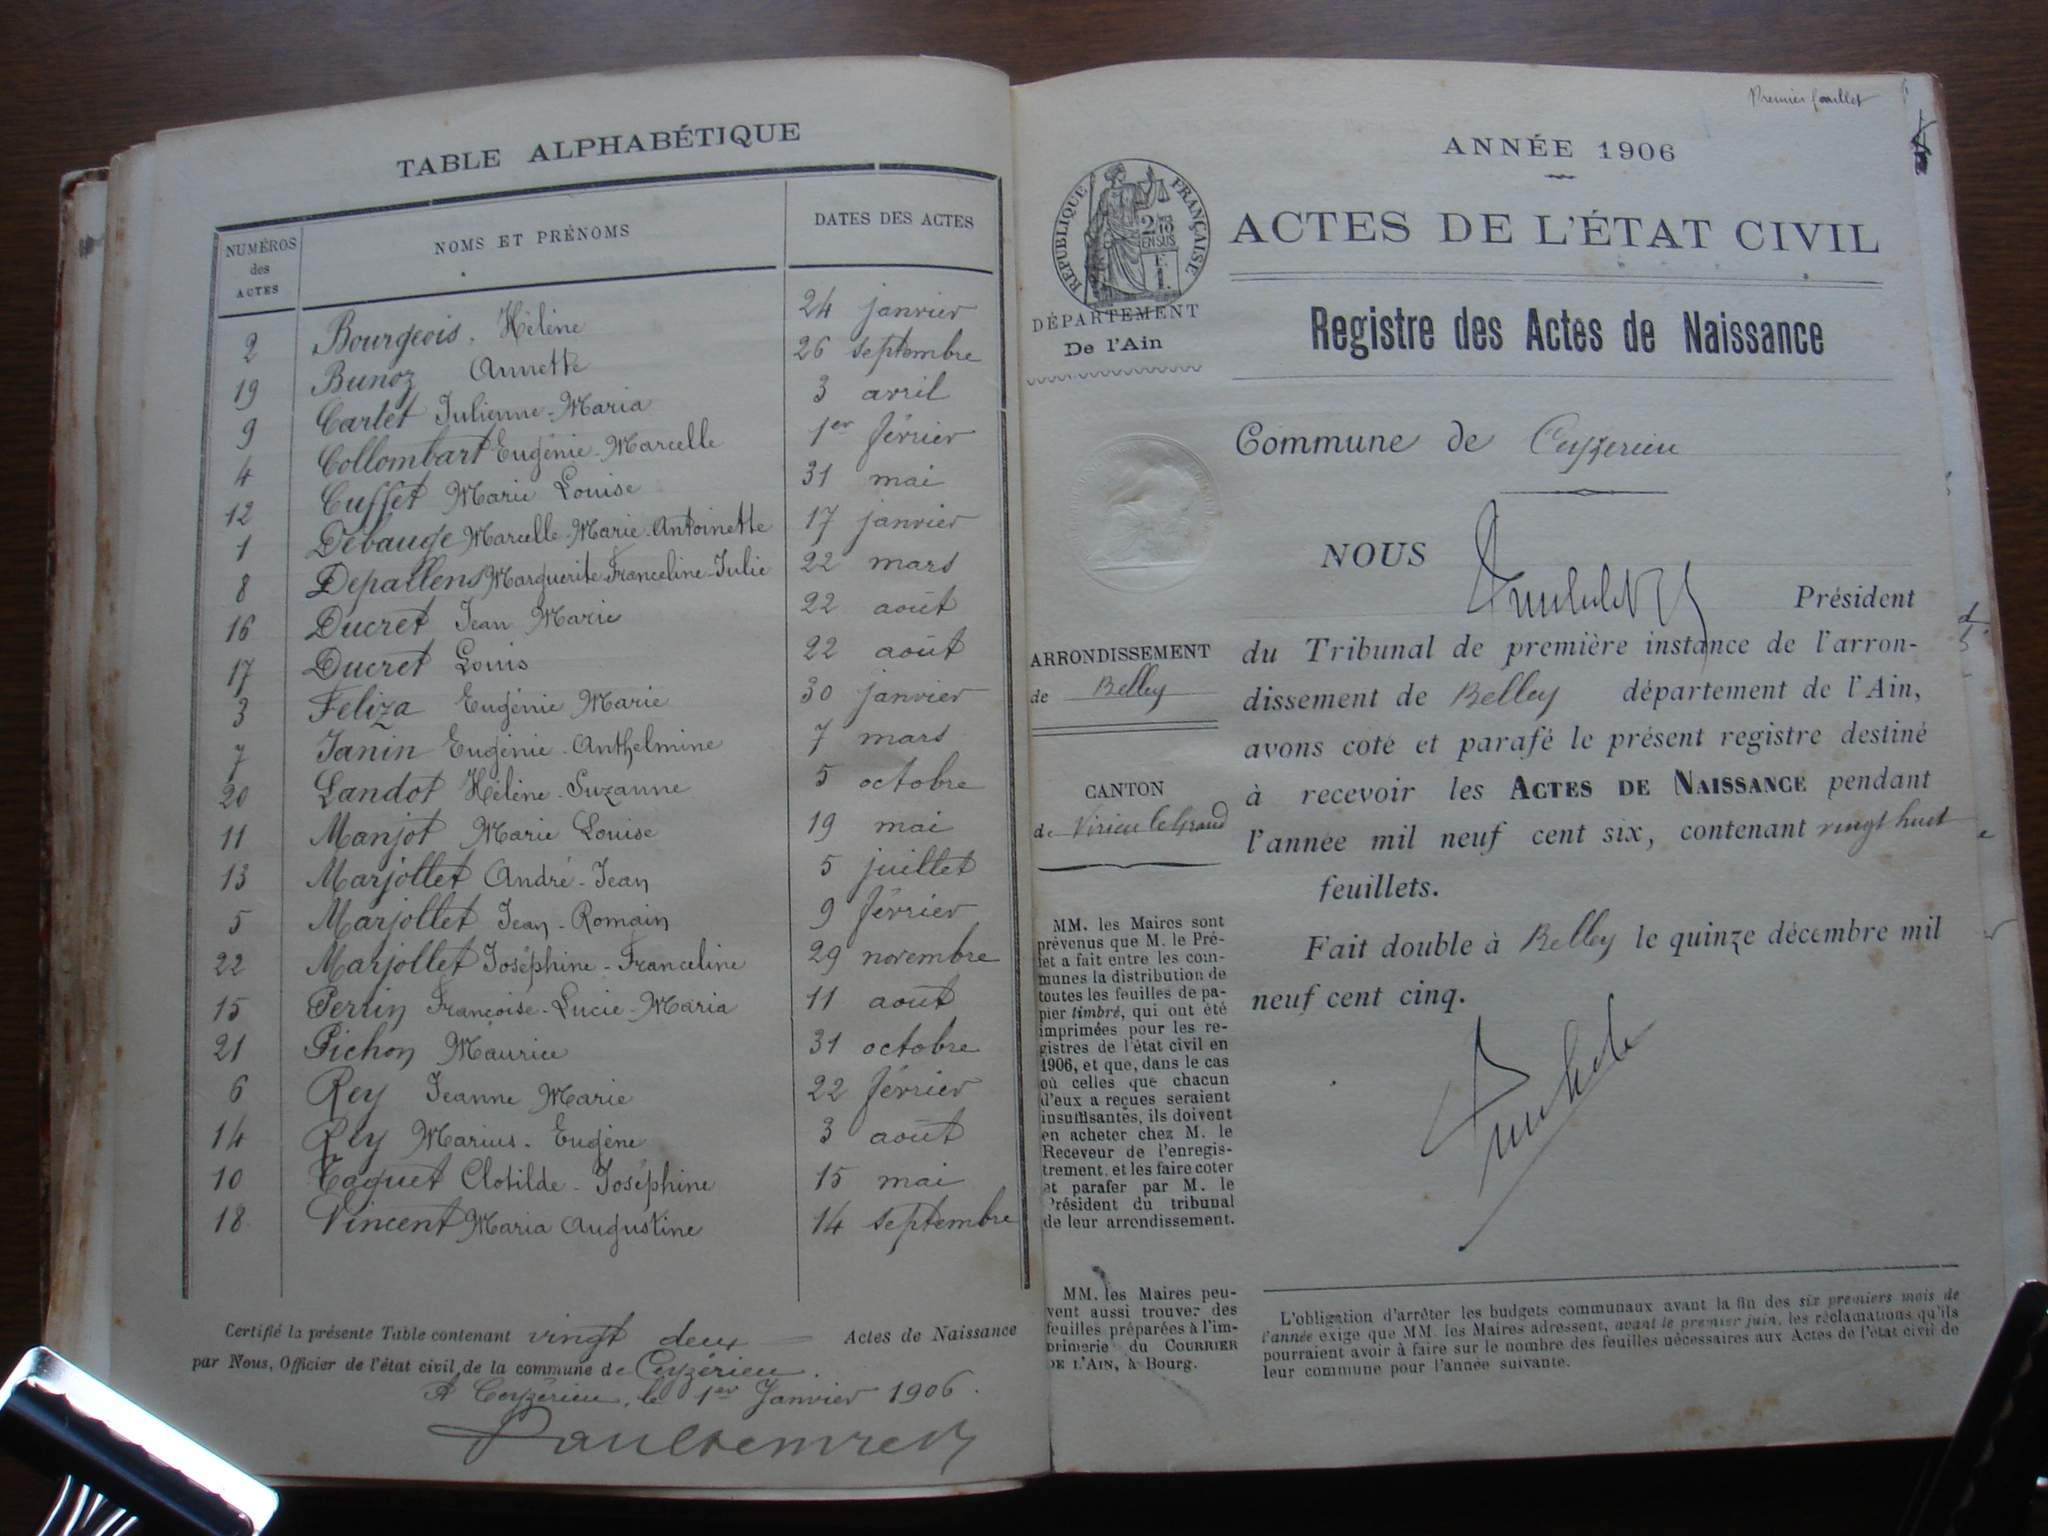 TABLE ALPHABÉTIQUE
NUMÉROS des ACTES NOMS ET PRÉNOMS DATES DES ACTES
2 Bourgeois, Hélène 24 janvier
19 Bunoz Annette 26 septembre
9 Cartet Julienne-Maria 3 avril
4 Collombart Eugénie-Marcelle 1er février
12 Cuffet Marie Louise 31 mai
1 Debauge Marcelle-Marie-Antoinette 17 janvier
8 Depallens Marguerite-Franceline-Julie 22 mars
16 Ducret Jean Marie 22 août
17 Ducret Louis 22 août
3 Feliza Eugénie Marie 30 janvier
7 Janin Eugénie-Anthelmine 7 mars
20 Landot Hélène-Suzanne 5 octobre
11 Manjot Marie Louise 19 mai
13 Marjollet André-Jean 5 juillet
5 Marjollet Jean-Romain 9 février
22 Marjollet Joséphine-Franceline 29 novembre
15 Perrin Françoise-Lucie-Maria 11 août
21 Pichon Maurice 31 octobre
6 Rey Jeanne Marie 22 février
14 Rey Marius-Eugène 3 août
10 Taquet Clotilde-Joséphine 15 mai
18 Vincent Maria Augustine 14 septembre
Certifié la présente Table contenant vingt deux Actes de Naissance
par Nous, Officier de l'état civil de la commune de Ceyzérieu.
A Ceyzérieu, le 1er Janvier 1906.
Premier feuillet
ANNÉE 1906
RÉPUBLIQUE FRANÇAISE
2/10 EN SUS
F. 1.
ACTES DE L'ÉTAT CIVIL
DÉPARTEMENT
De l'Ain
Registre des Actes de Naissance
Commune de Ceyzerieu
NOUS
Président
du Tribunal de première instance de l'arron-
dissement de Belley département de l'Ain,
avons coté et parafé le présent registre destiné
à recevoir les ACTES DE NAISSANCE pendant
l'année mil neuf cent six, contenant vingt huit
feuillets.
Fait double à Belley le quinze décembre mil
neuf cent cinq.
ARRONDISSEMENT
de Belley
CANTON
de Virieu le Grand
MM. les Maires sont
prévenus que M. le Pré-
fet a fait entre les com-
munes la distribution de
toutes les feuilles de pa-
pier timbré, qui ont été
imprimées pour les re-
gistres de l'état civil en
1906, et que, dans le cas
où celles que chacun
d'eux a reçues seraient
insuffisantes, ils doivent
en acheter chez M. le
Receveur de l'enregis-
trement, et les faire coter
et parafer par M. le
Président du tribunal
de leur arrondissement.
MM. les Maires peu-
vent aussi trouver des
feuilles préparées à l'im-
primerie du COURRIER
DE L'AIN, à Bourg.
L'obligation d'arrêter les budgets communaux avant la fin des six premiers mois de
l'année exige que MM. les Maires adressent, avant le premier juin, les réclamations qu'ils
pourraient avoir à faire sur le nombre des feuilles nécessaires aux Actes de l'état civil de
leur commune pour l'année suivante.